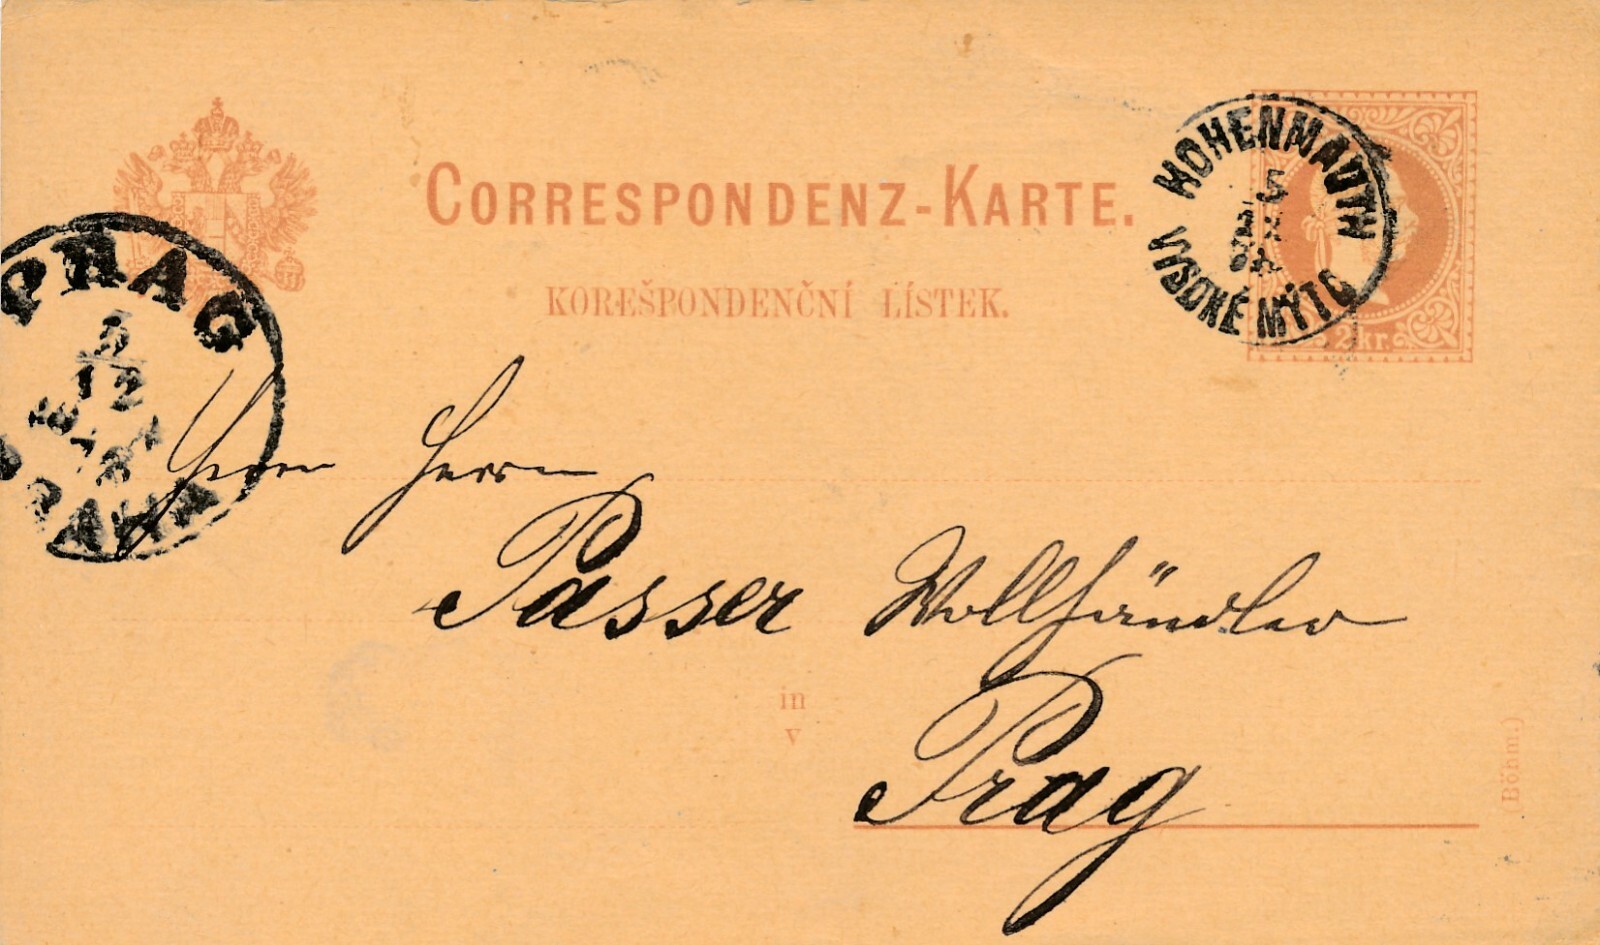 CORRESPONDENZ-KARTE.
KORESPONDENČNÍ LÍSTEK.
HOHENMAUTH
5
VYSOKÉ MÝTO
2 kr.
PRAG
5/12
PRAHA
Herrn Herrn
Passer Wollhändler
in
v
Prag
(Böhm.)